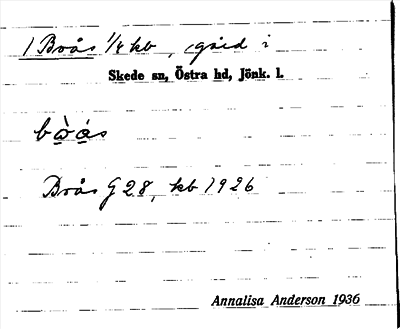 1 Boås 1/4 kb, gård i
Skede sn, Östra hd, Jönk. l.
bò̱á̱s
Boås G 28, kb 1926
Annalisa Anderson 1936